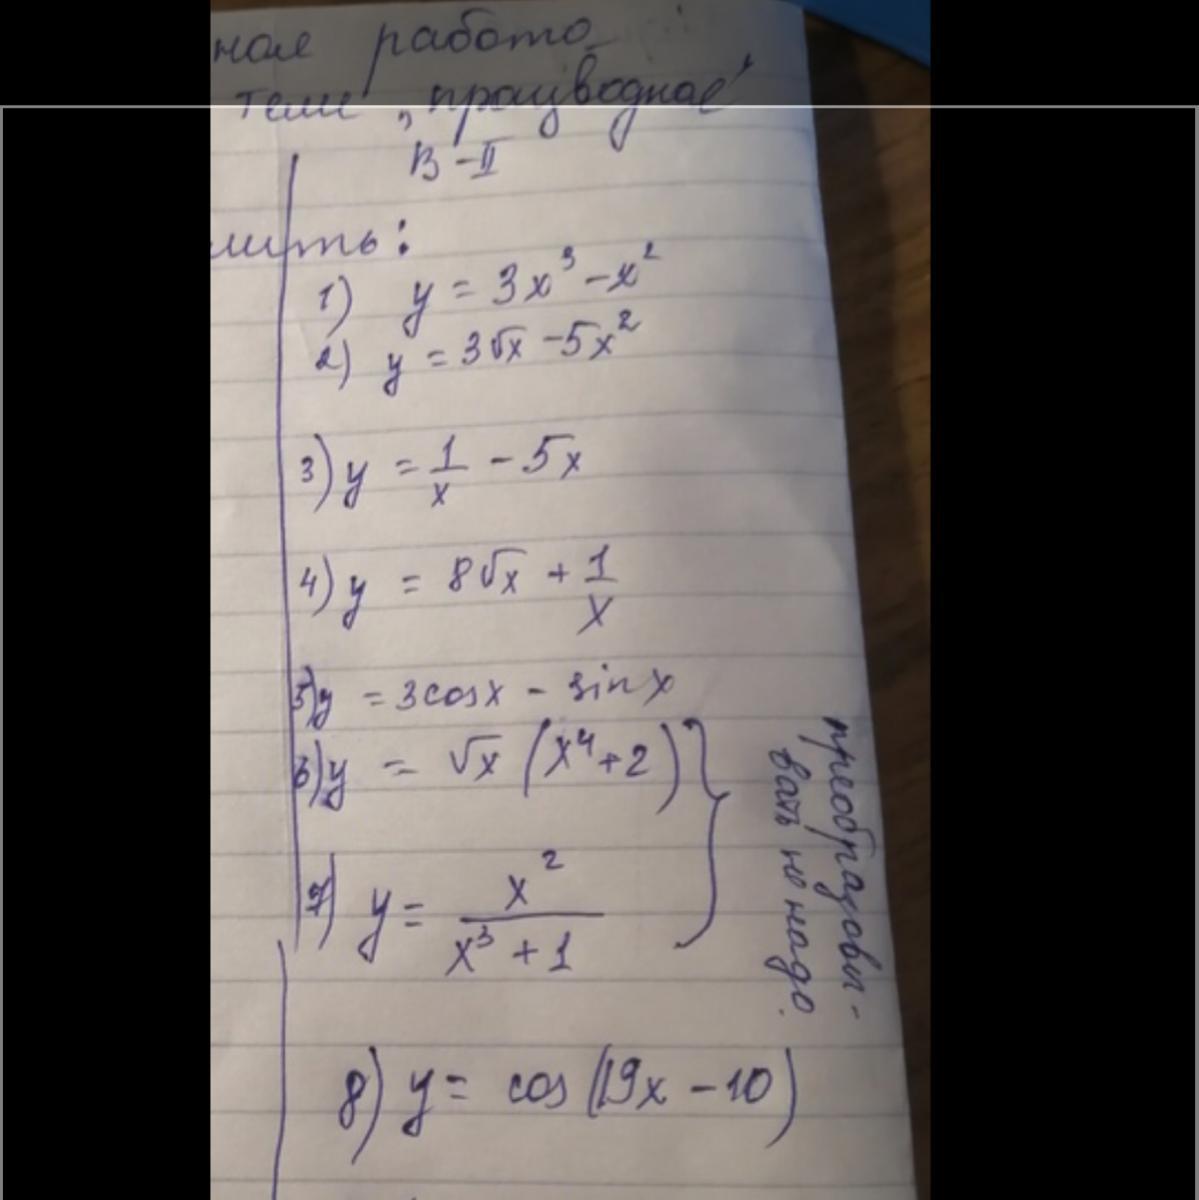 ная работа
теме „производная"
В-II
лить:
1) y = 3x³ - x²
2) y = 3√x - 5x²
3) y = 1/x - 5x
4) y = 8√x + 1/x
5) y = 3cosx - sinx
6) y = √x (x⁴+2)
7) y = x²/(x³ + 1)
преобразовы-
вать не надо.
8) y = cos(19x - 10)